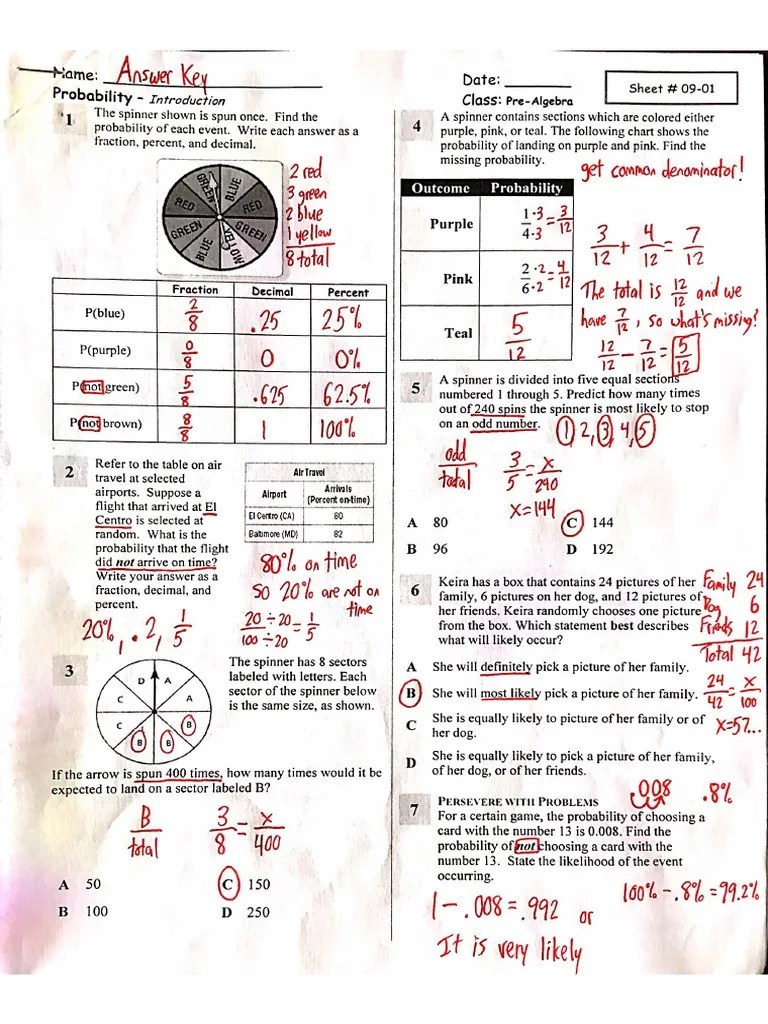 Name: Answer Key
Date: ________
Sheet # 09-01
Probability - Introduction
Class: Pre-Algebra
1
The spinner shown is spun once. Find the
probability of each event. Write each answer as a
fraction, percent, and decimal.
GREEN BLUE RED GREEN YELLOW BLUE GREEN RED
2 red
3 green
2 blue
1 yellow
8 total
Fraction Decimal Percent
P(blue) 2/8 .25 25%
P(purple) 0/8 0 0%
P(not green) 5/8 .625 62.5%
P(not brown) 8/8 1 100%
2
Refer to the table on air
travel at selected
airports. Suppose a
flight that arrived at El
Centro is selected at
random. What is the
probability that the flight
did not arrive on time?
Write your answer as a
fraction, decimal, and
percent.
20%, .2, 1/5
Air Travel
Airport Arrivals (Percent on-time)
El Centro (CA) 80
Baltimore (MD) 82
80% on time
so 20% are not on
time
20 ÷20 = 1
100 ÷20 5
3
The spinner has 8 sectors
labeled with letters. Each
sector of the spinner below
is the same size, as shown.
D A A B B B C C
If the arrow is spun 400 times, how many times would it be
expected to land on a sector labeled B?
B 3 = x
total 8 400
A 50 C 150
B 100 D 250
4
A spinner contains sections which are colored either
purple, pink, or teal. The following chart shows the
probability of landing on purple and pink. Find the
missing probability.
get common denominator!
Outcome Probability
Purple 1·3 = 3
4·3 12
Pink 2·2 = 4
6·2 12
Teal 5
12
3 + 4 = 7
12 12 12
The total is 12/12 and we
have 7/12, so what's missing?
12 - 7 = 5
12 12 12
5
A spinner is divided into five equal sections
numbered 1 through 5. Predict how many times
out of 240 spins the spinner is most likely to stop
on an odd number. 1, 2, 3, 4, 5
odd 3 = x
total 5 240
x=144
A 80 C 144
B 96 D 192
6
Keira has a box that contains 24 pictures of her
family, 6 pictures on her dog, and 12 pictures of
her friends. Keira randomly chooses one picture
from the box. Which statement best describes
what will likely occur?
Family 24
Dog 6
Friends 12
Total 42
A She will definitely pick a picture of her family.
B She will most likely pick a picture of her family.
24 = x
42 100
x=57...
C She is equally likely to picture of her family or of
her dog.
D She is equally likely to pick a picture of her family,
of her dog, or of her friends.
7
PERSEVERE WITH PROBLEMS
.008 .8%
For a certain game, the probability of choosing a
card with the number 13 is 0.008. Find the
probability of not choosing a card with the
number 13. State the likelihood of the event
occurring.
1 - .008 = .992 or
100% - .8% = 99.2%
It is very likely